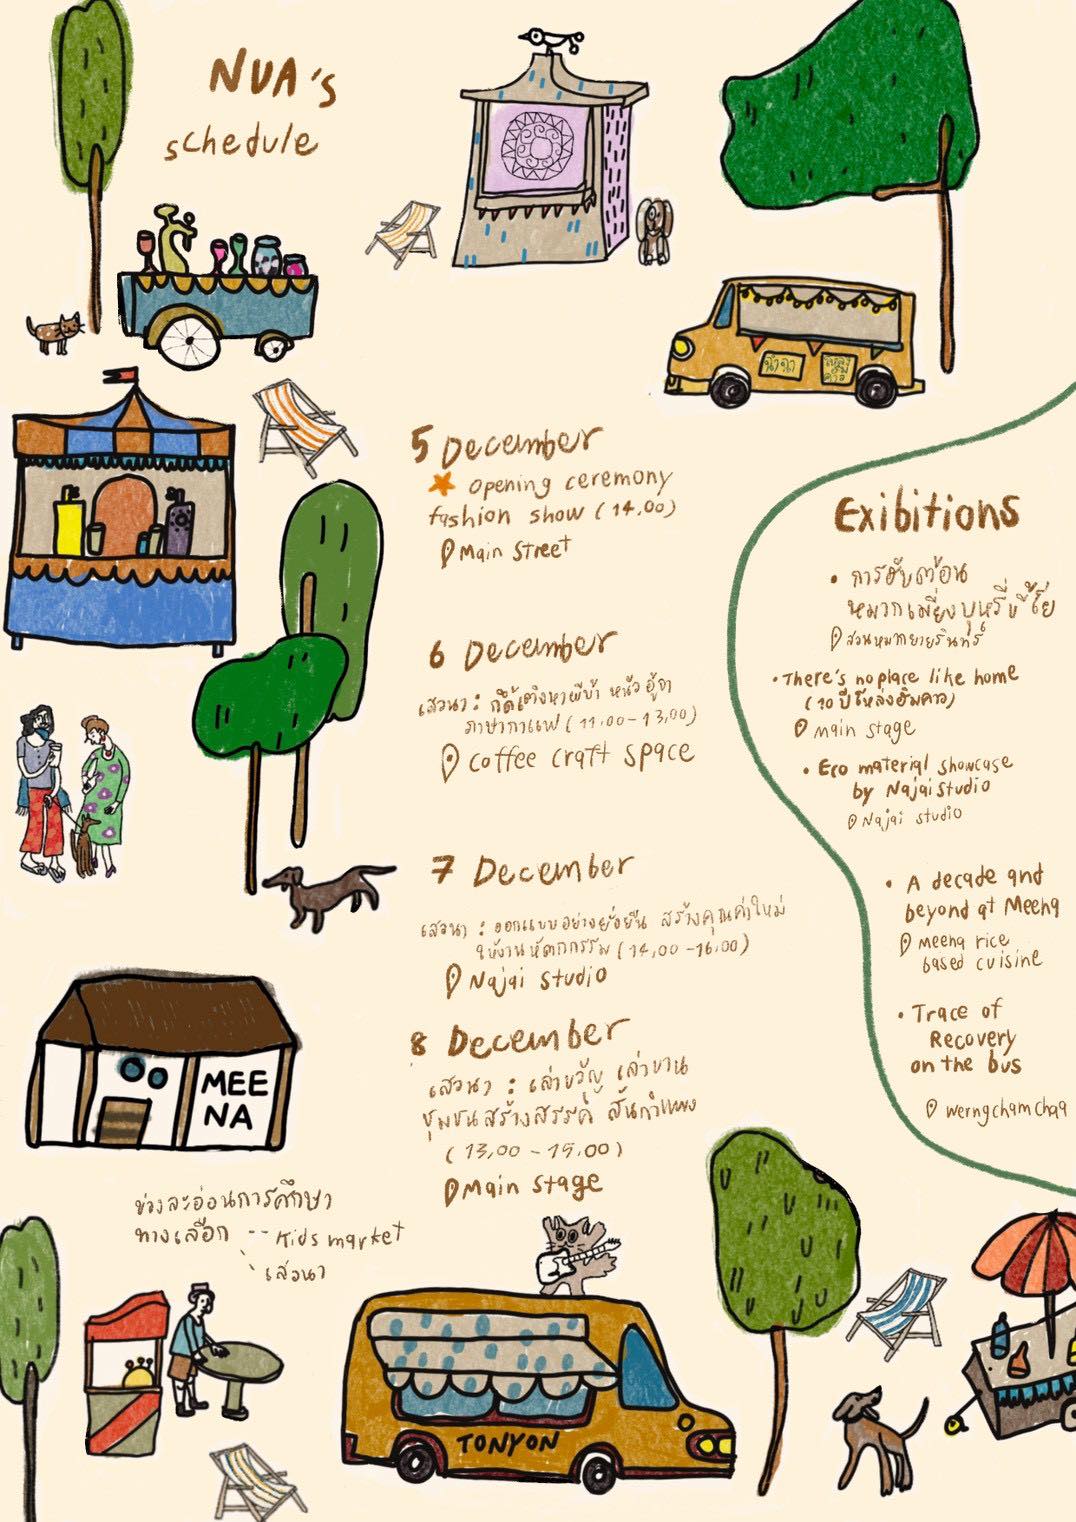 NUA's
schedule
5 December
opening ceremony
fashion show (14.00)
Main Street
6 December
เสวนา :
ภาษากาแฟ (11.00-13.00)
Coffee craft space
7 December
เสวนา : ออกแบบอย่างยั่งยืน สร้างคุณค่าใหม่
ให้งานหัตถกรรม (14.00-16.00)
Najai Studio
8 December
เสวนา : เล่าขวัญ เล่าขาน
ชุมชนสร้างสรรค์ สันกำแพง
(13.00 - 15.00)
Main stage
Exibitions
• การฮับต้อน
หมากเมี่ยงบุหรี่ขี้โย
สวนหมากยายรินทร์
• There's no place like home
(10 ปี โหล่งฮิมคาว)
main stage
• Eco material showcase
by Najai Studio
Najai studio
• A decade and
beyond at Meena
Meena rice
based cuisine
• Trace of
Recovery
on the bus
werngchamchaa
MEE
NA
ข่วงละอ่อนการศึกษา
ทางเลือก -- Kids market
เสวนา
TONYON